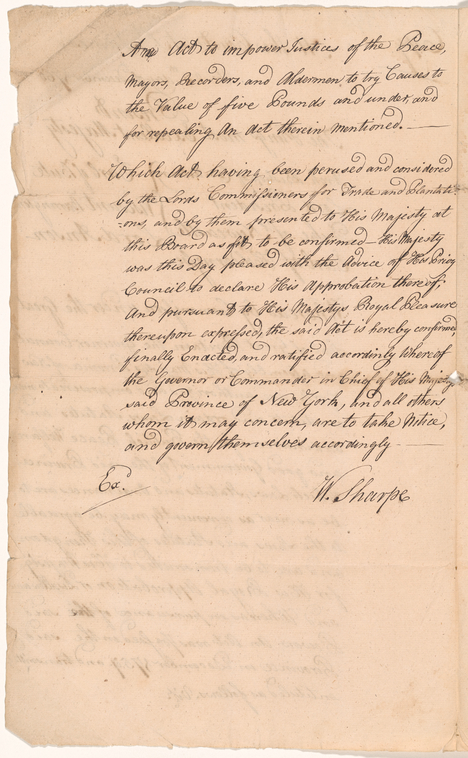 An Act to impower Justices of the Peace,
Mayors, Recorders, and Aldermen to try Causes to
the Value of five Pounds and under, and
for repealing An Act therein mentioned.
Which Act having been perused and considered
by the Lords Commissioners for Trade and Plantati=
=ons, and by them presented to His Majesty at
this Board as fit to be confirmed – His Majesty
was this Day pleased with the Advice of His Privy
Council to declare His Approbation thereof;
And pursuant to His Majestys Royal Pleasure
thereupon expressed, the said Act is hereby confirmed,
finally Enacted, and ratified accordingly Whereof
the Governor or Commander in Chief of His Majestys
said Province of New York, and all others
whom it may concern, are to take Notice,
and govern themselves accordingly
Exd. W. Sharpe